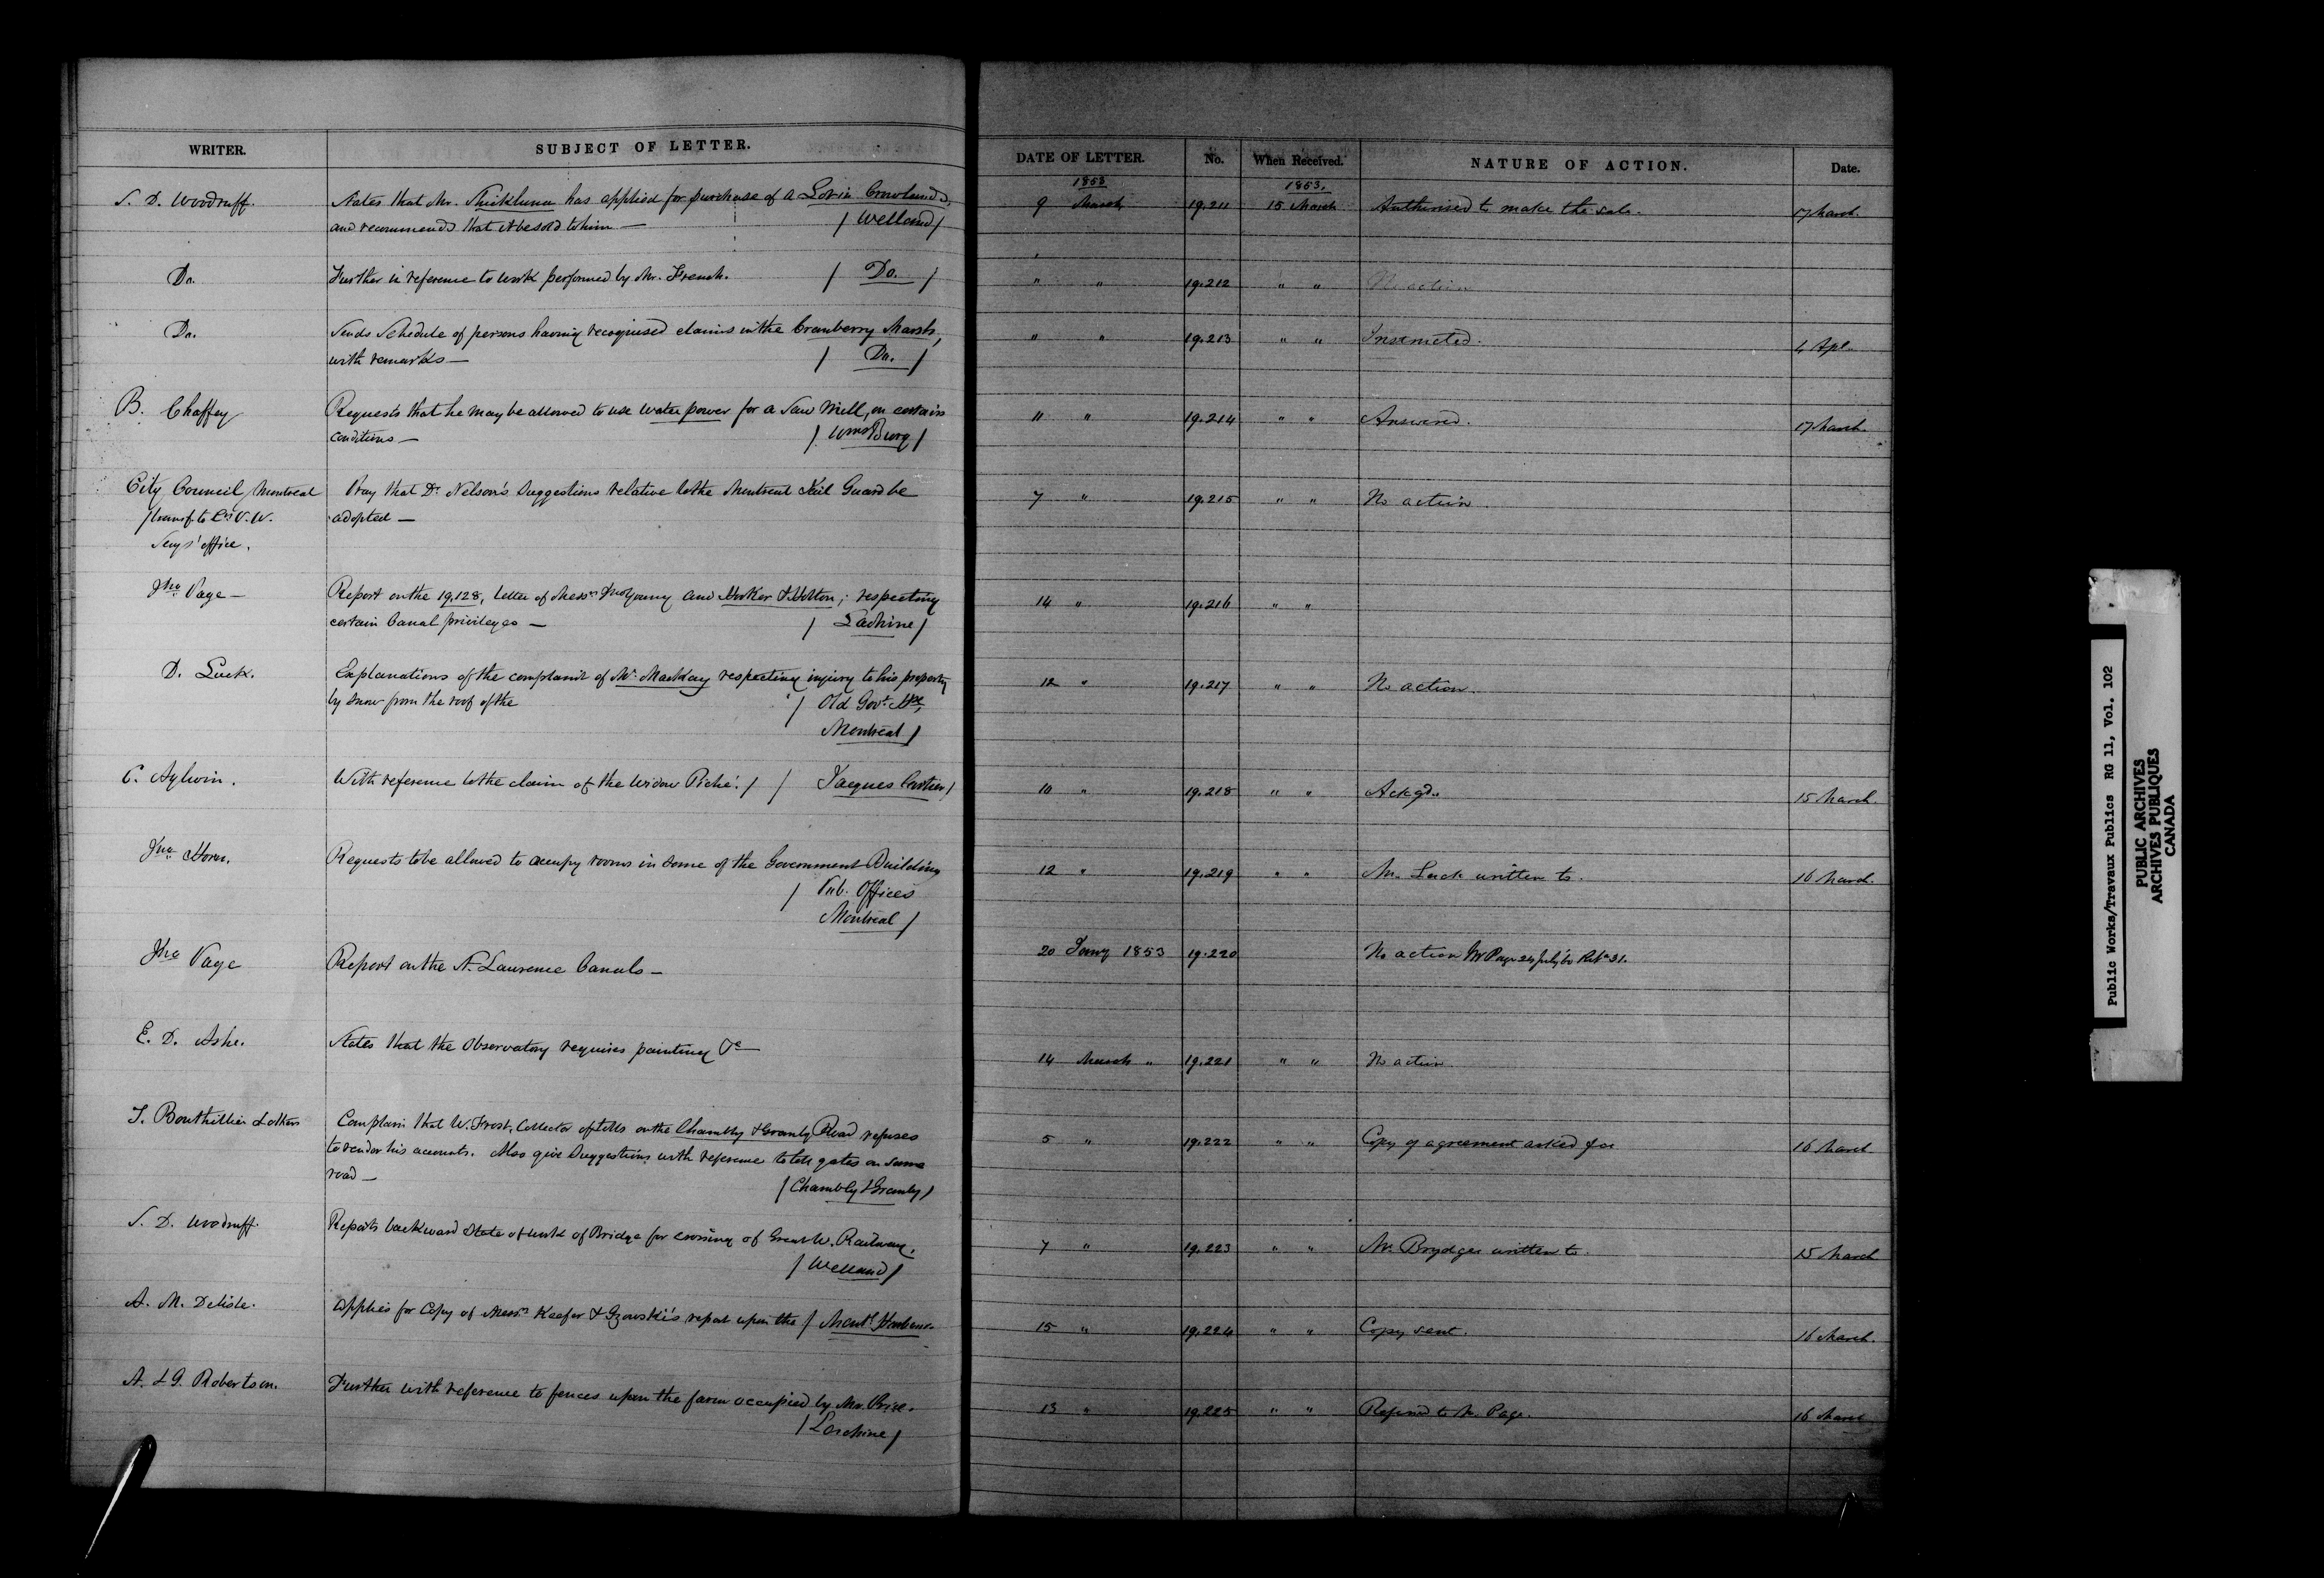 WRITER. SUBJECT OF LETTER.
S. D. Woodruff. States that Mr. Shickluna has applied for purchase of a Lot in Crowland,
and recommends that it be sold to him — / Welland /
Do. Further in reference to work performed by Mr. French. / Do. /
Do. Sends Schedule of persons having recognised claims in the Cranberry Marsh,
with remarks — / Do. /
B. Chaffey Requests that he may be allowed to use water power for a Saw Mill, on certain
conditions — / WmsBurg /
City Council Montreal Pray that Dr. Nelson's Suggestions relative to the Montreal Jail Guard be
/transf. to V.W. adopted —
Secys' office.
Jno. Page — Report on the 19,128, letter of Messrs Jno Young and Hooker & Holton; respecting
certain Canal privileges — / Lachine /
D. Luck. Explanations of the complaint of Mr. MacKay respecting injury to his property
by snow from the roof of the / Old Govt. Hse,
Montreal /
C. Aylwin. With reference to the claim of the widow Piché. / / Jacques Cartier /
Jno. Horn. Requests to be allowed to occupy rooms in some of the Government Building
/ Pub. Offices
Montreal /
Jno Page Report on the St. Lawrence Canals —
E. D. Ashe. States that the Observatory requires painting &c —
T. Bouthillier & others Complain that W. Frost, Collector of tolls on the Chambly & Granby Road refuses
to render his accounts. Also give Suggestions with reference to toll gates on same
road — / Chambly & Granby /
S. D. Woodruff. Reports backward state of work of Bridge for crossing of Great W. Railway.
/ Welland /
A. M. Delisle. Applies for Copy of Messrs Keefer & Gzowski's report upon the / Montl. Harbour.
A. & G. Robertson. Further with reference to fences upon the farm occupied by Mr. Price.
/ Lachine /
DATE OF LETTER. No. When Received. NATURE OF ACTION. Date.
1853 1853.
9 March 19.211 15 March Authorised to make the sale. 17 March.
" " 19.212 " " No action
" " 19.213 " " Instructed. 4 Apl.
11 " 19.214 " " Answered. 17 March.
7 " 19.215 " " No action.
14 " 19.216 " "
12 " 19.217 " " No action.
10 " 19.218 " " Ackgd. 15 March.
12 " 19.219 " " Mr. Luck written to. 16 March.
20 Jany 1853 19.220 No action Mr Page 24 July '60 31.
14 March " 19.221 " " No action
5 " 19.222 " " Copy of agreement asked for 16 March
7 " 19.223 " " Mr. Brydges written to. 15 March
15 " 19.224 " " Copy sent. 16 March.
13 " 19.225 " " Referred to Mr. Page. 16 March
Public Works/Travaux Publics RG 11, Vol. 102
PUBLIC ARCHIVES
ARCHIVES PUBLIQUES
CANADA